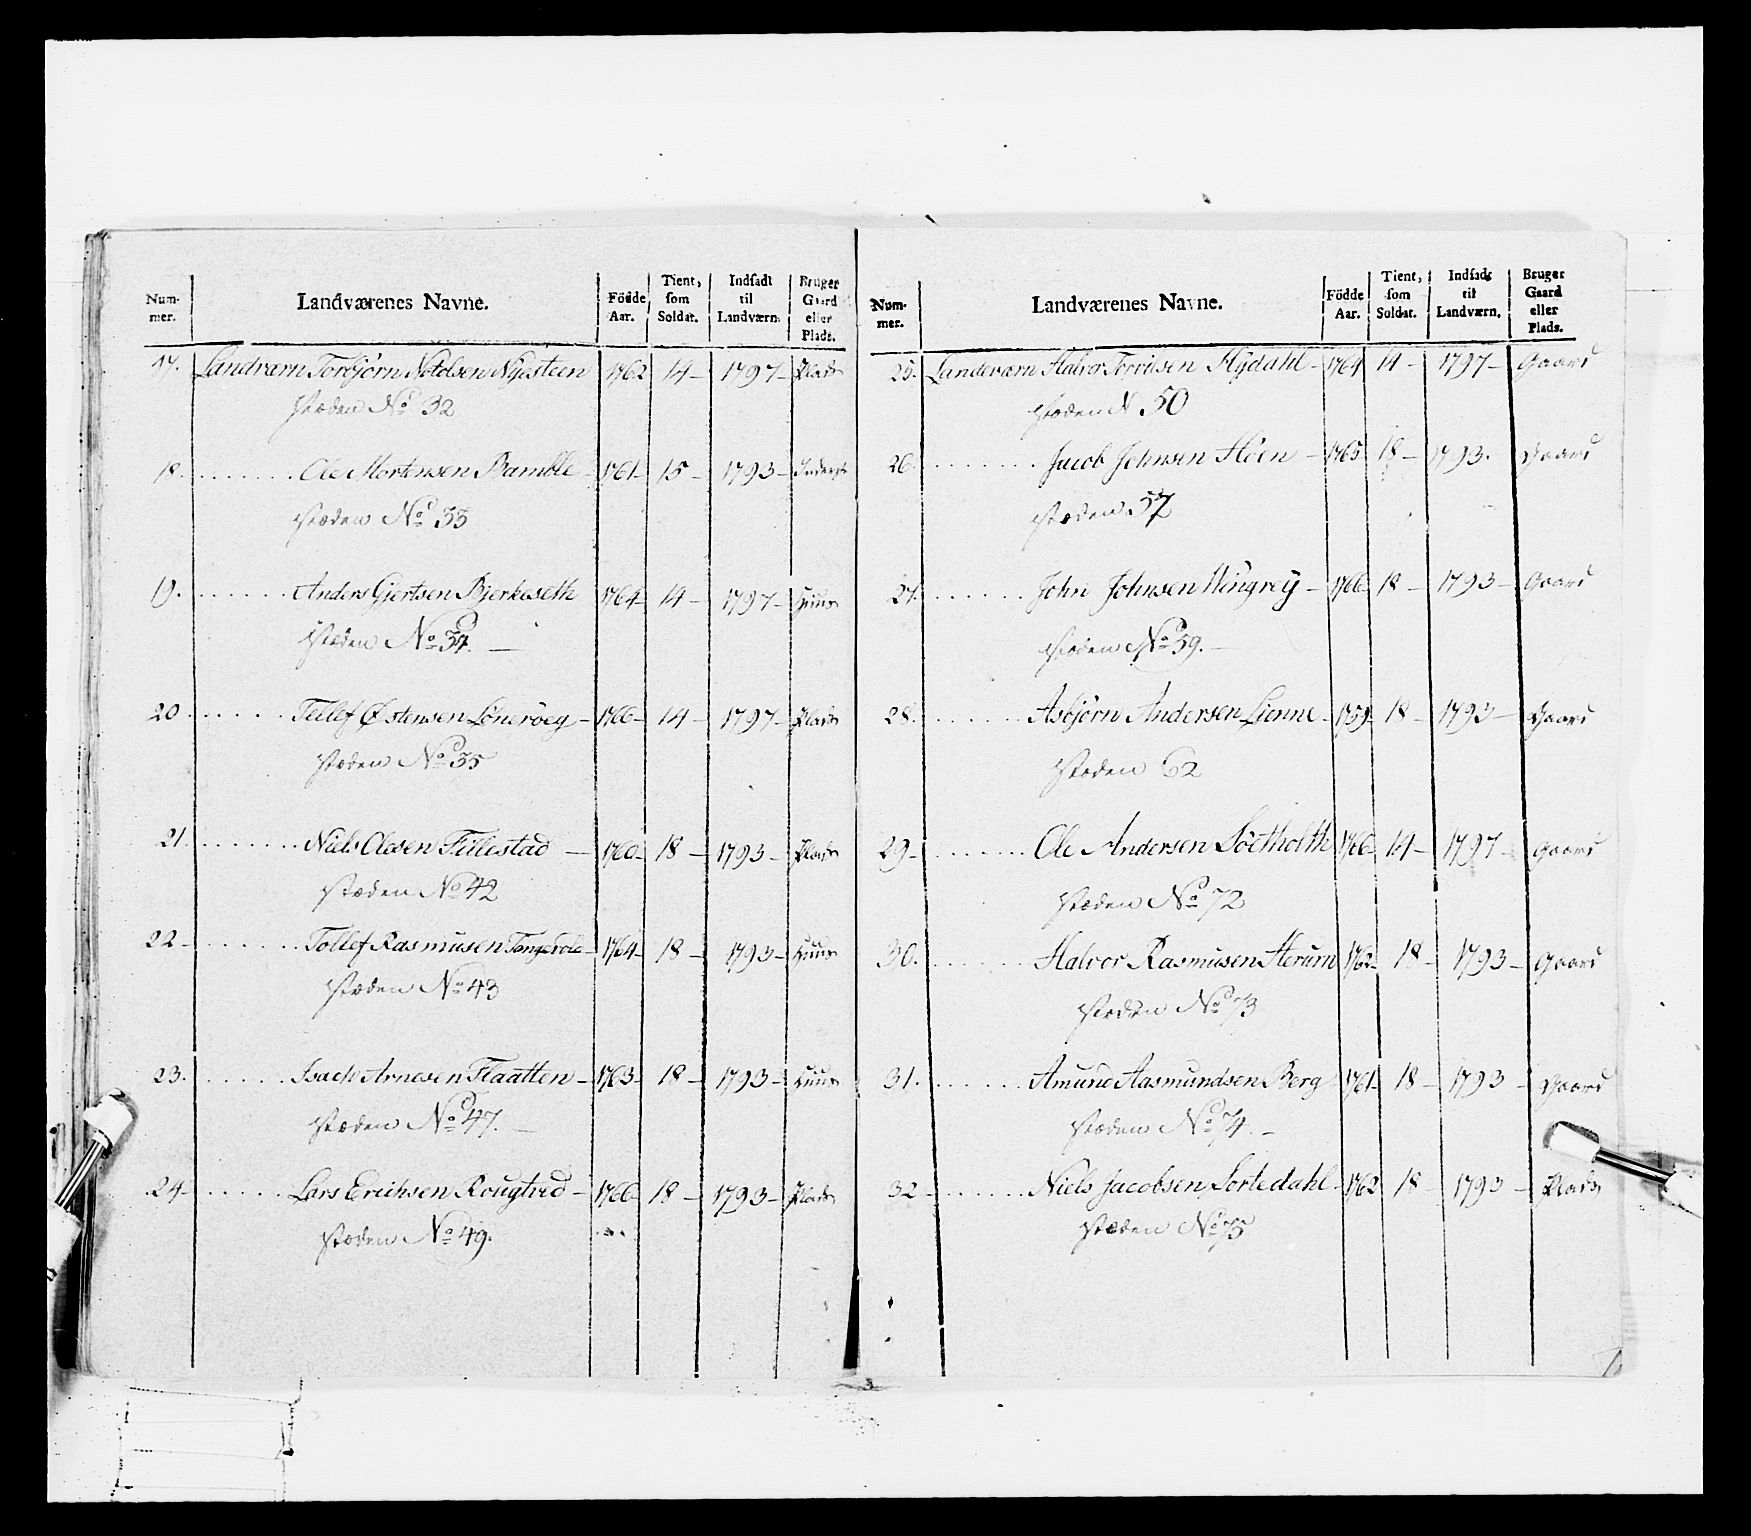 Num-
mer.
Landværenes Navne.
Födde
Aar.
Tient,
som
Soldat.
Indsadt
til
Landværn.
Bruger
Gaard
eller
Plads.
17. Landværn Torbjörn Nyesteen 1762 14 – 1797 – Plads
No 32
18. Ole Mortensen Bamble – 1761 – 15 – 1793 –
No 33
19. Anders Gjertsen Bjerkeseth 1764 – 14 – 1797 – Huus
No 34. –
20 Tellef Østensen Löneröeg – 1766 – 14 – 1797 – Plads
No 35
21 Niels Olesen Fillestad – 1760 – 18 – 1793 – Plads
No 42
22 – Tollef Rasmusen – 1764 – 18 – 1793 – Huus
No 43
23. Isach Arnesen Flaatten – 1763 – 18 – 1793 – Huus
No 47. –
24 – Lars Erichsen Rougtved – 1766 – 18 – 1793 – Plads
No 49.
Num-
mer.
Landværenes Navne.
Födde
Aar.
Tient,
som
Soldat.
Indsadt
til
Landværn.
Bruger
Gaard
eller
Plads.
25. Landeværn Halvor – 1764 14 – 1797 – Gaard
N 50
26. Jacob Johnsen Höen – 1765 18 – 1793. Gaard
57
27. John Johnsen Wingrey – 1766 – 18 – 1793 – Gaard
No 59. –
28. Asbjörn Andersen Lienne – 1759 – 18 – 1793 – Gaard
62
29 – Ole Andersen Söetholth 1766 – 14 – 1797 – Gaard
No 72
30. Halvor Rasmusen Herum 1762 – 18 – 1793 – Gaard
No 73
31. Amund Aasmundsen Berg 1761 – 18 – 1793 – Gaard
No 74. –
32 – Niels Jacobsen Sortedahl – 1762 18 – 1793 – Plads
No 75